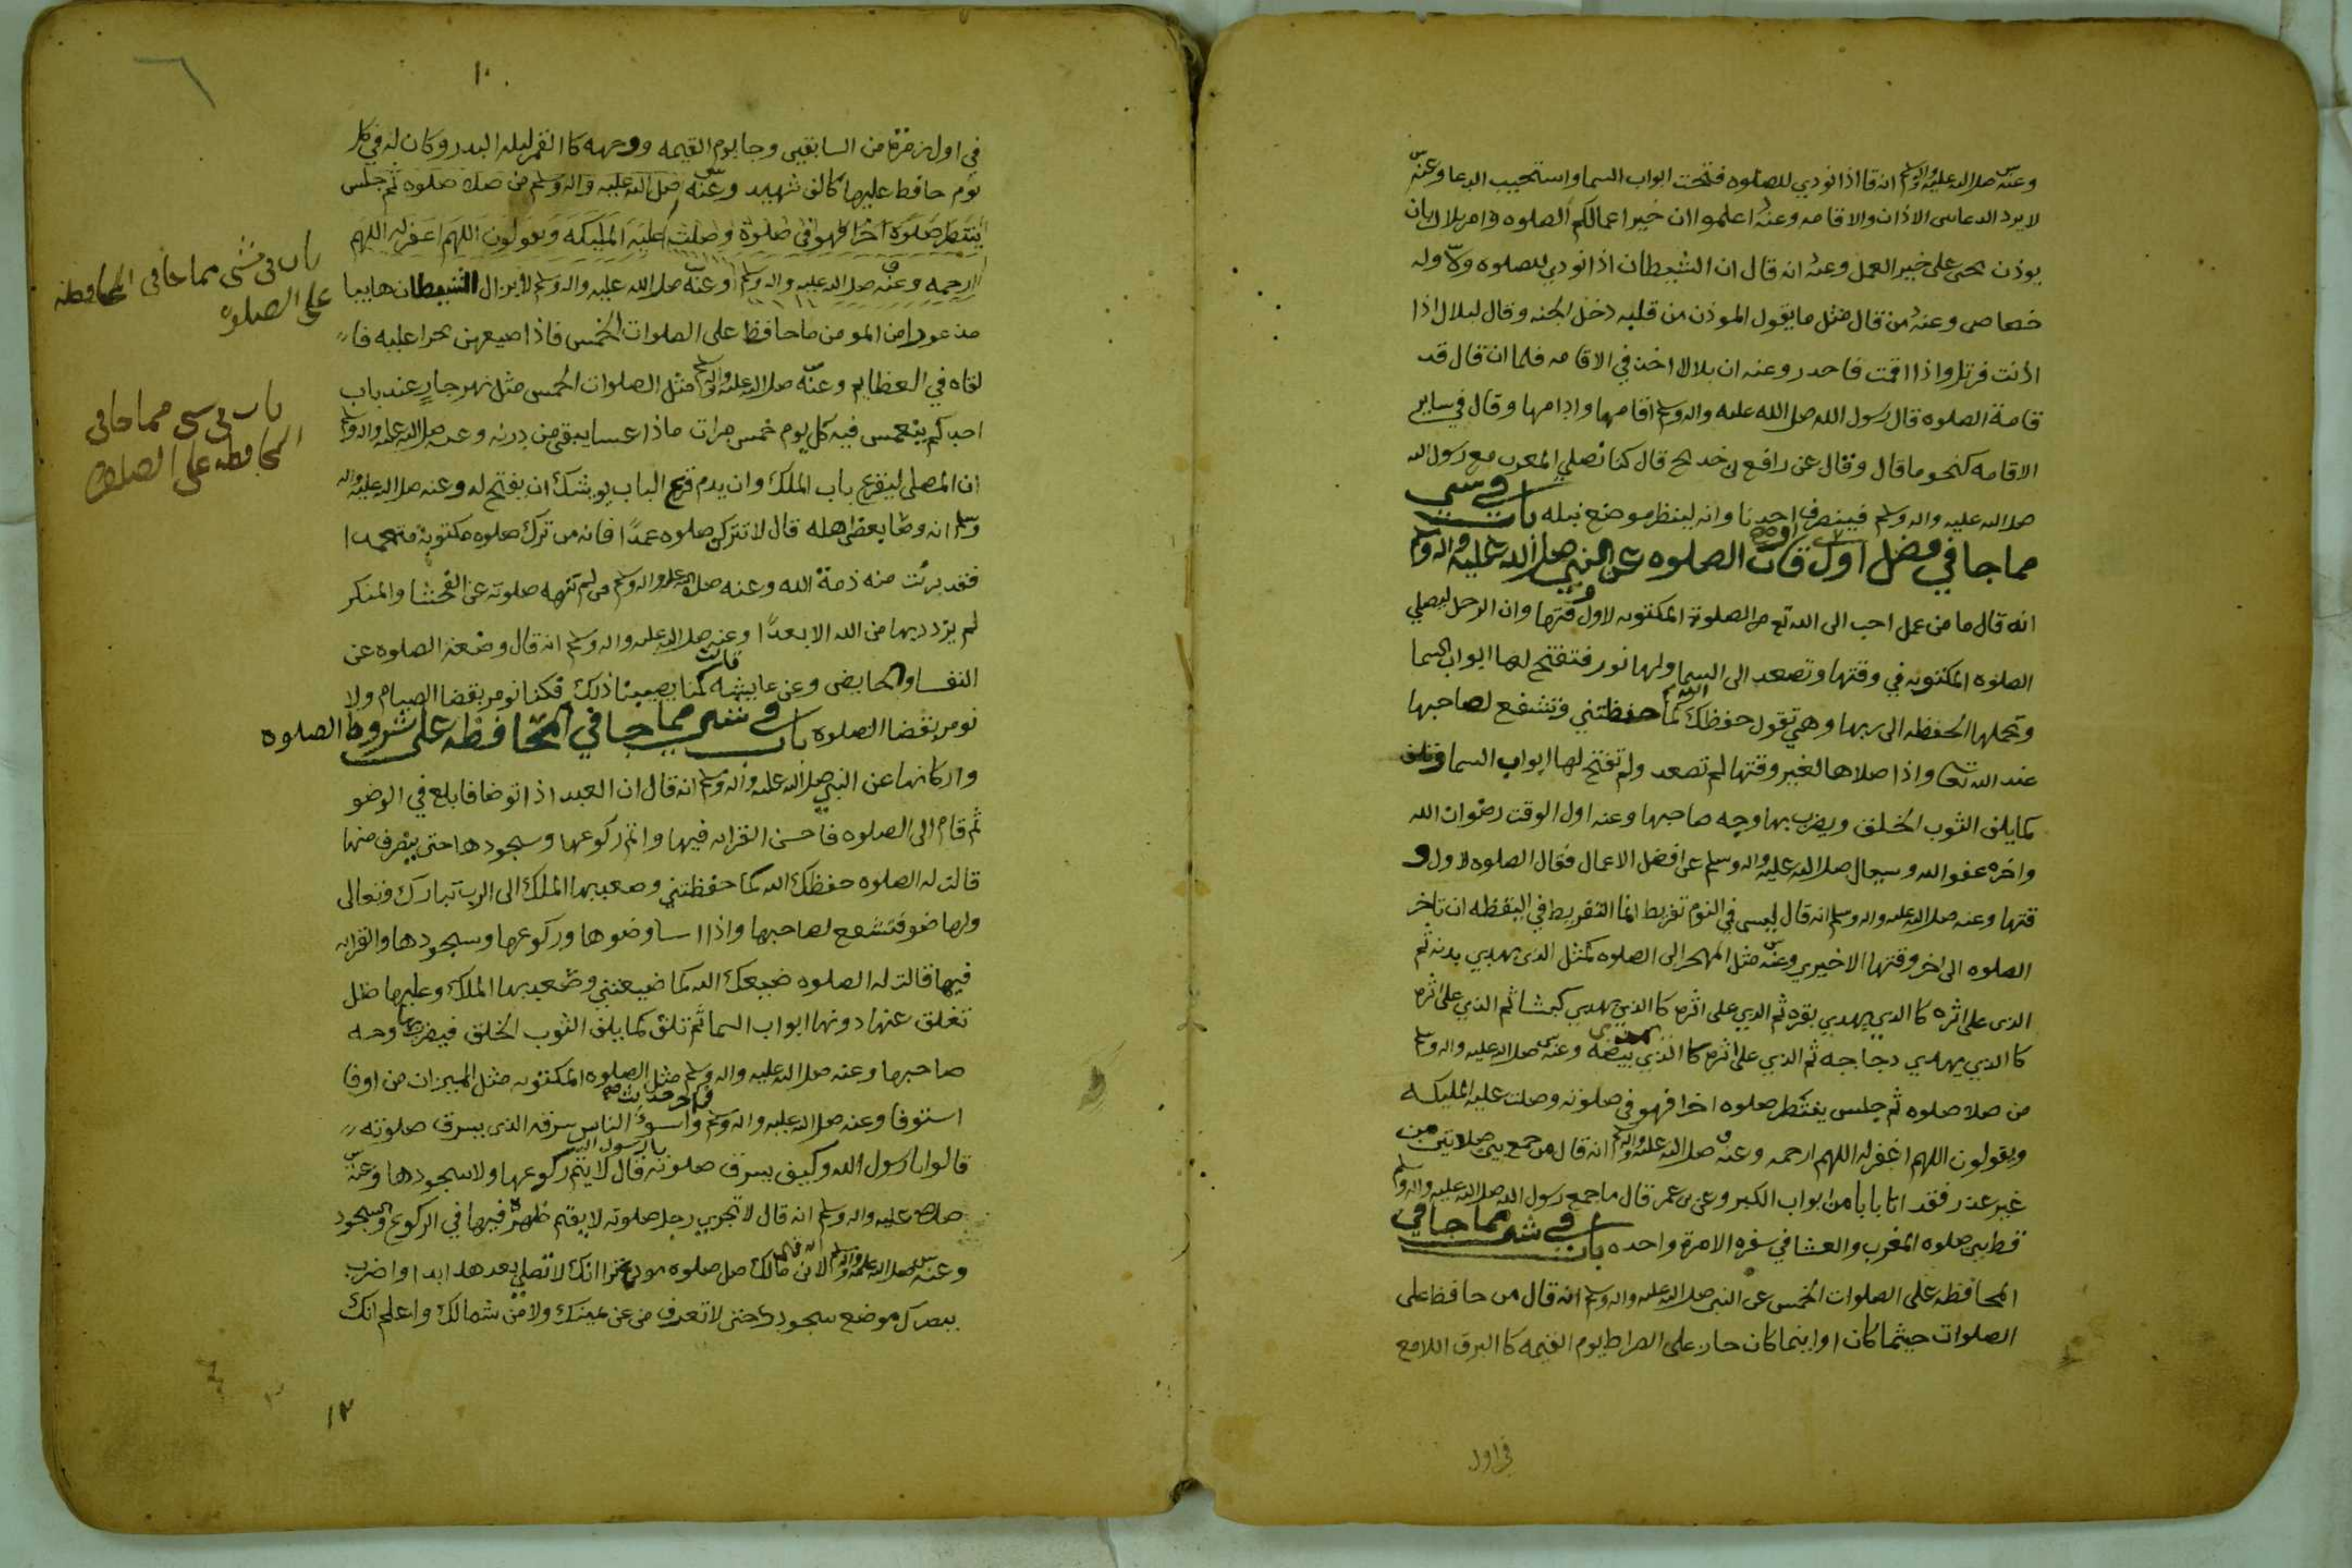 وعنه صلا الله عليه واله وسلم انه قا اذا نودي للصلوه فتحت ابواب السما واستجيب الدعا وعنه
لا يرد الدعا بين الاذان والاقامه وعنه اعلموا ان خير اعمالكم الصلوه وامر بلال بان
يوذن بحي على خير العمل وعنه انه قال ان الشيطان اذا نودي للصلوه ولا وله
خصاص وعنه من قال مثل ما يقول الموذن من قلبه دخل الجنه وقال لبلال اذا
اذنت فرتل واذا اقمت فاحدر وعنه ان بلالا اخذ في الاقامه فلما ان قال قد
قامة الصلوه قال رسول الله صلى الله عليه واله وسلم اقامها وادامها وقال في ساير
الاقامه كنحو ما قال وقال عن رافع بن خديج قال كنا نصلي المغرب مع رسول الله
صلا الله عليه واله وسلم فينصرف احدنا وانه لينظر موضع نبله باب في شي
مما جا في فضل اول اوقات الصلوه عن النبي صلا الله عليه واله وسلم
انه قال ما من عمل احب الى الله تع من الصلوة المكتوبه لاول وقتها وان الرجل ليصلي
الصلوه المكتوبه في وقتها وتصعد الى السما ولها نور فتفتح لها ابواب السما
وتحملها الحفظه الى ربها وهي تقول حفظك الله كما حفظتني وتشفع لصاحبها
عند الله تعا واذا صلاها لغير وقتها لم تصعد ولم تفتح لها ابواب السما وتلف
كما يلف الثوب الخلق ويضرب بها وجه صاحبها وعنه اول الوقت رضوان الله
واخره عفو الله وسيال صلا الله عليه واله وسلم عن افضل الاعمال فقال الصلوه لاول و
قتها وعنه صلا الله عليه واله وسلم انه قال ليس في النوم تفريط انما التفريط في اليقظه ان تاخر
الصلوه الى اخر وقتها الاخيري وعنه مثل المهجر الى الصلوه كمثل الذي يهدي بدنه ثم
الذي على اثره كا الذي يهدي بقره ثم الذي على اثره كا الذي يهدي كبشا ثم الذي على اثره
كا الذي يهدي دجاجه ثم الذي على اثره كا الذي بيضه وعنه صلا الله عليه واله وسلم
من صلا صلوه ثم جلس ينتظر صلوه اخرا فهو في صلوته وصلت عليه المليكه
ويقولون اللهم اغفر له اللهم ارحمه وعنه صلا الله عليه واله وسلم انه قال من جمع بين صلاتين من
غير عذر فقد اتا بابا من ابواب الكبر وعن بن عمر قال ما جمع رسول الله صلا الله عليه واله وسلم
قط بين صلوه المغرب والعشا في سفره الا مرة واحده باب في شي مما جا في
المحافظه على الصلوات الخمس عن النبي صلا الله عليه واله وسلم انه قال من حافظ على
الصلوات حيثما كان او اينما كان جاز على الصراط يوم القيمه كا البرق اللامع
في اول
١٠
في اول زمرة من السابقين وجا يوم القيمه ووجهه كا القمر ليله البدر وكان له في كل
يوم حافظ عليها كالف شهيد وعنه صلى الله عليه واله وسلم من صلا صلوه ثم جلس
ينتظر صلوه اخرا فهو في صلوة وصلت عليه المليكه ويقولون اللهم اغفر له اللهم
ارحمه وعنه صلا الله عليه واله وسلم وعنه صلا الله عليه واله وسلم لا يزال الشيطان هايبا
مذعورا من المومن ما حافظ على الصلوات الخمس فاذا ضيعهن تجرا عليه فا
لقاه في العظايم وعنه صلا الله عليه واله وسلم مثل الصلوات الخمس مثل نهر جارٍ عند باب
احدكم ينغمس فيه كل يوم خمس مرات ماذا عسا يبقى من درنه وعنه صلا الله عليه واله وسلم
ان المصلي ليقرع باب الملك وان يدم قرع الباب يوشك ان يفتح له وعنه صلا الله عليه واله
وسلم انه وصا بعض اهله قال لا تتركن صلوه عمدًا فانه من ترك صلوه مكتوبة متعمدا
فقد برئت منه ذمة الله وعنه صلا الله عليه واله وسلم من لم تنهه صلوته عن الفحشا والمنكر
لم يزدد بها من الله الا بعدًا وعنه صلا الله عليه واله وسلم انه قال وضعة الصلوه عن
النفسا والحايض وعن عايشه قالت كنا يصيبنا ذلك فكنا نومر بقضا الصيام ولا
نومر بقضا الصلوه باب في شي مما جا في المحافظه على شروط الصلوه
واركانها عن النبي صلا الله عليه واله وسلم انه قال ان العبد اذا توضا فابلغ في الوضو
ثم قام الى الصلوه فاحسن القراه فيها واتم ركوعها وسجودها حتى ينصرف منها
قالت له الصلوه حفظك الله كما حفظتني وصعد بها الملك الى الرب تبارك وتعالى
ولها ضو فتشفع لصاحبها واذا اسا وضوها وركوعها وسجودها والقراه
فيها قالت له الصلوه ضيعك الله كما ضيعتني وصعد بها الملك وعليها ظل
تغلق عنها دونها ابواب السما ثم تلف كما يلف الثوب الخلق فيضرب بها وجه
صاحبها وعنه صلا الله عليه واله وسلم مثل الصلوه المكتوبه مثل الميزان من اوفا
استوفا وعنه صلا الله عليه واله وسلم واسوء الناس سرقه الذي يسرق صلوته
قالوا يا رسول الله وكيف يسرق صلوته قال لا يتم ركوعها ولا سجودها وعنه
صلا الله عليه واله وسلم انه قال لا تجزي رجل صلوته لا يقيم ظهره فيها في الركوع والسجود
وعنه صلا الله عليه واله وسلم انه قال لانس بن مالك صل صلوه مودع ترا انك لا تصلي بعدها ابدا واضرب
ببصرك موضع سجودك حتى لا تعرف من عن يمينك ولا من شمالك واعلم انك
باب في شي مما جا في المحافظه
على الصلوه
باب في شي مما جا في
المحافظه على الصلوه
١٢